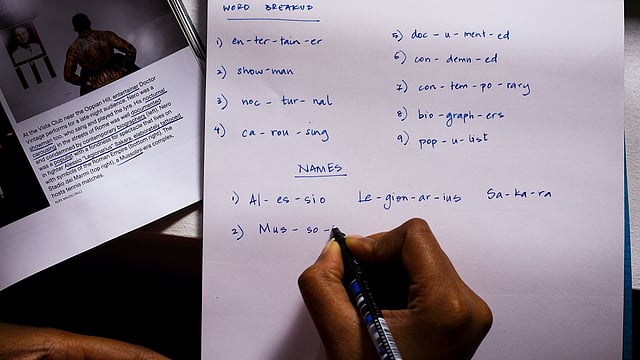 At the Vista Club near the Oppian Hill, entertainer Doctor
Vintage performs for a late-night audience. Nero was a
showman too, who sang and played the lyre. His nocturnal
carousing in the streets of Rome was well documented
and condemned by contemporary biographers (left). Nero
was a populist with a fondness for spectacle that lives on
in fighter Alessio "Legionarius" Sakara, elaborately tattooed
with symbols of the Roman Empire (bottom right).
Stadio dei Marmi (top right), a Mussolini-era complex,
hosts tennis matches.
WORD BREAKUP
1) en-ter-tain-er
2) show-man
3) noc-tur-nal
4) ca-rou-sing
5) doc-u-ment-ed
6) con-demn-ed
7) con-tem-po-rary
8) bio-graph-ers
9) pop-u-list
NAMES
1) Al-es-sio Le-gion-ar-ius Sa-ka-ra
2) Mus-so-